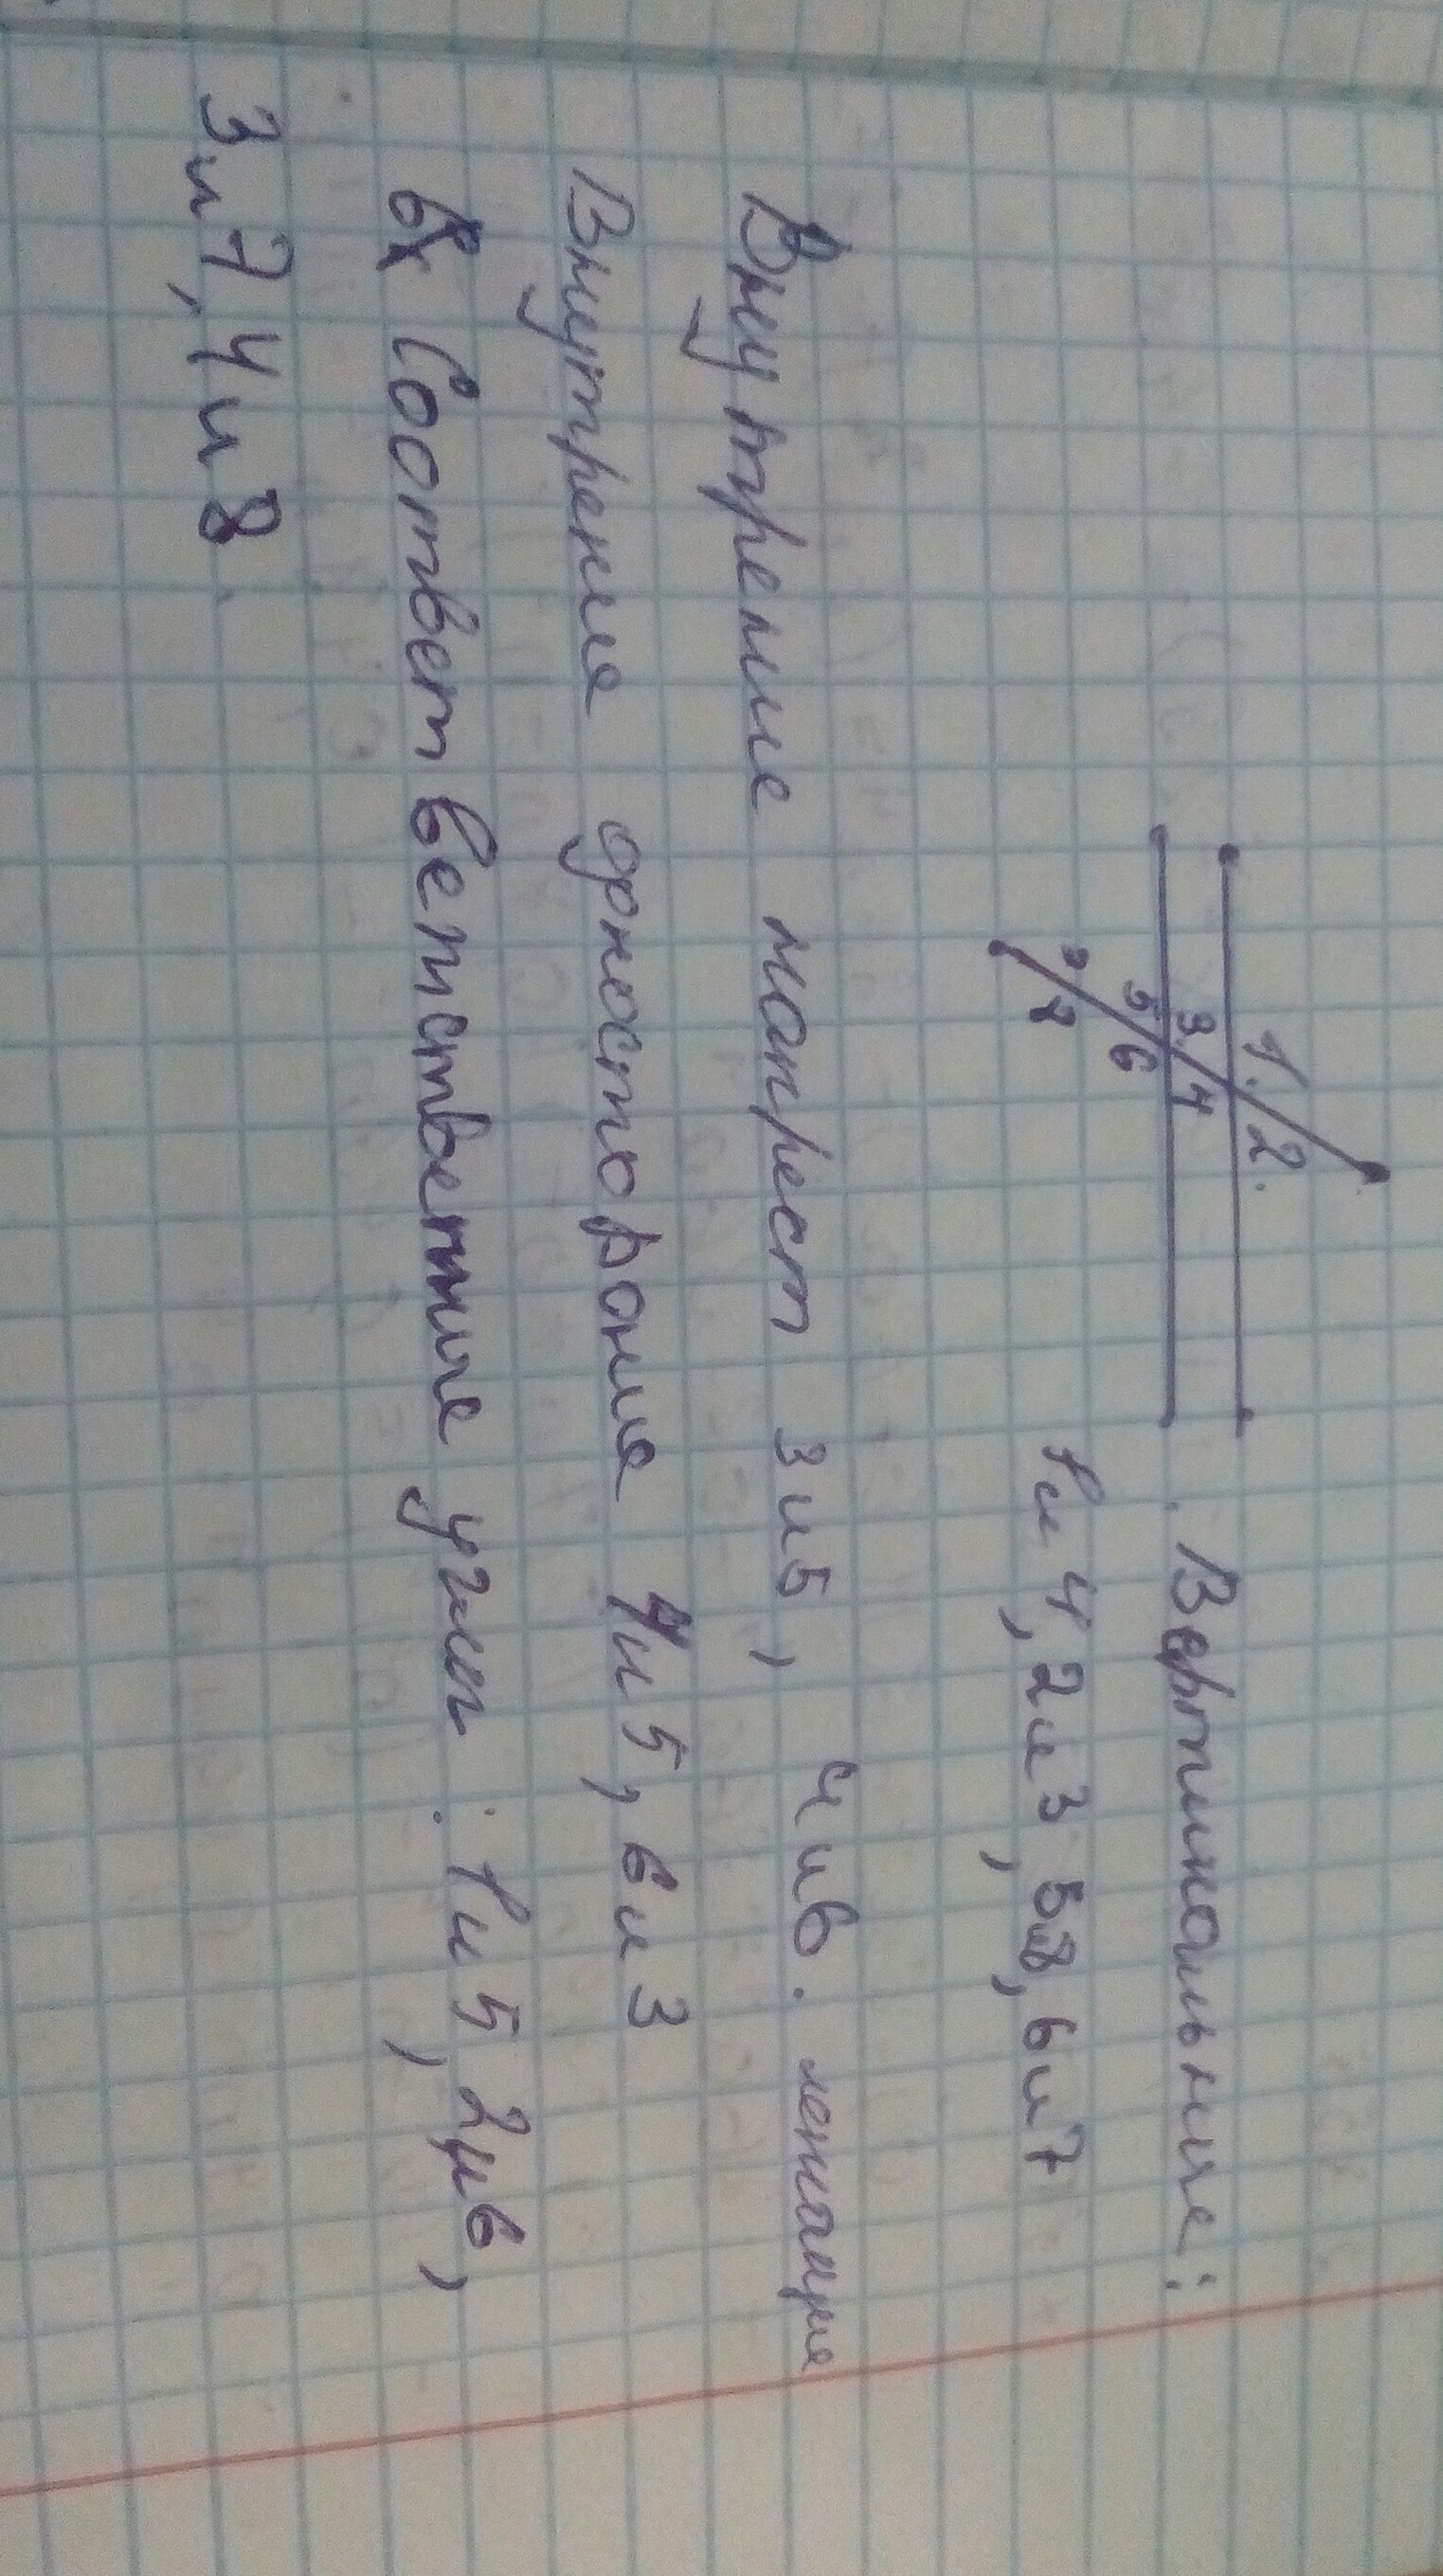 1 2
3 4
5 6
7 8
Вертикальные:
1 и 4, 2 и 3, 5 и 8, 6 и 7
Внутрение накрест 3 и 5, 4 и 6. лежащие
Внутрение одностороние 4 и 5, 6 и 3
Соответветственные углы: 1 и 5, 2 и 6,
3 и 7, 4 и 8